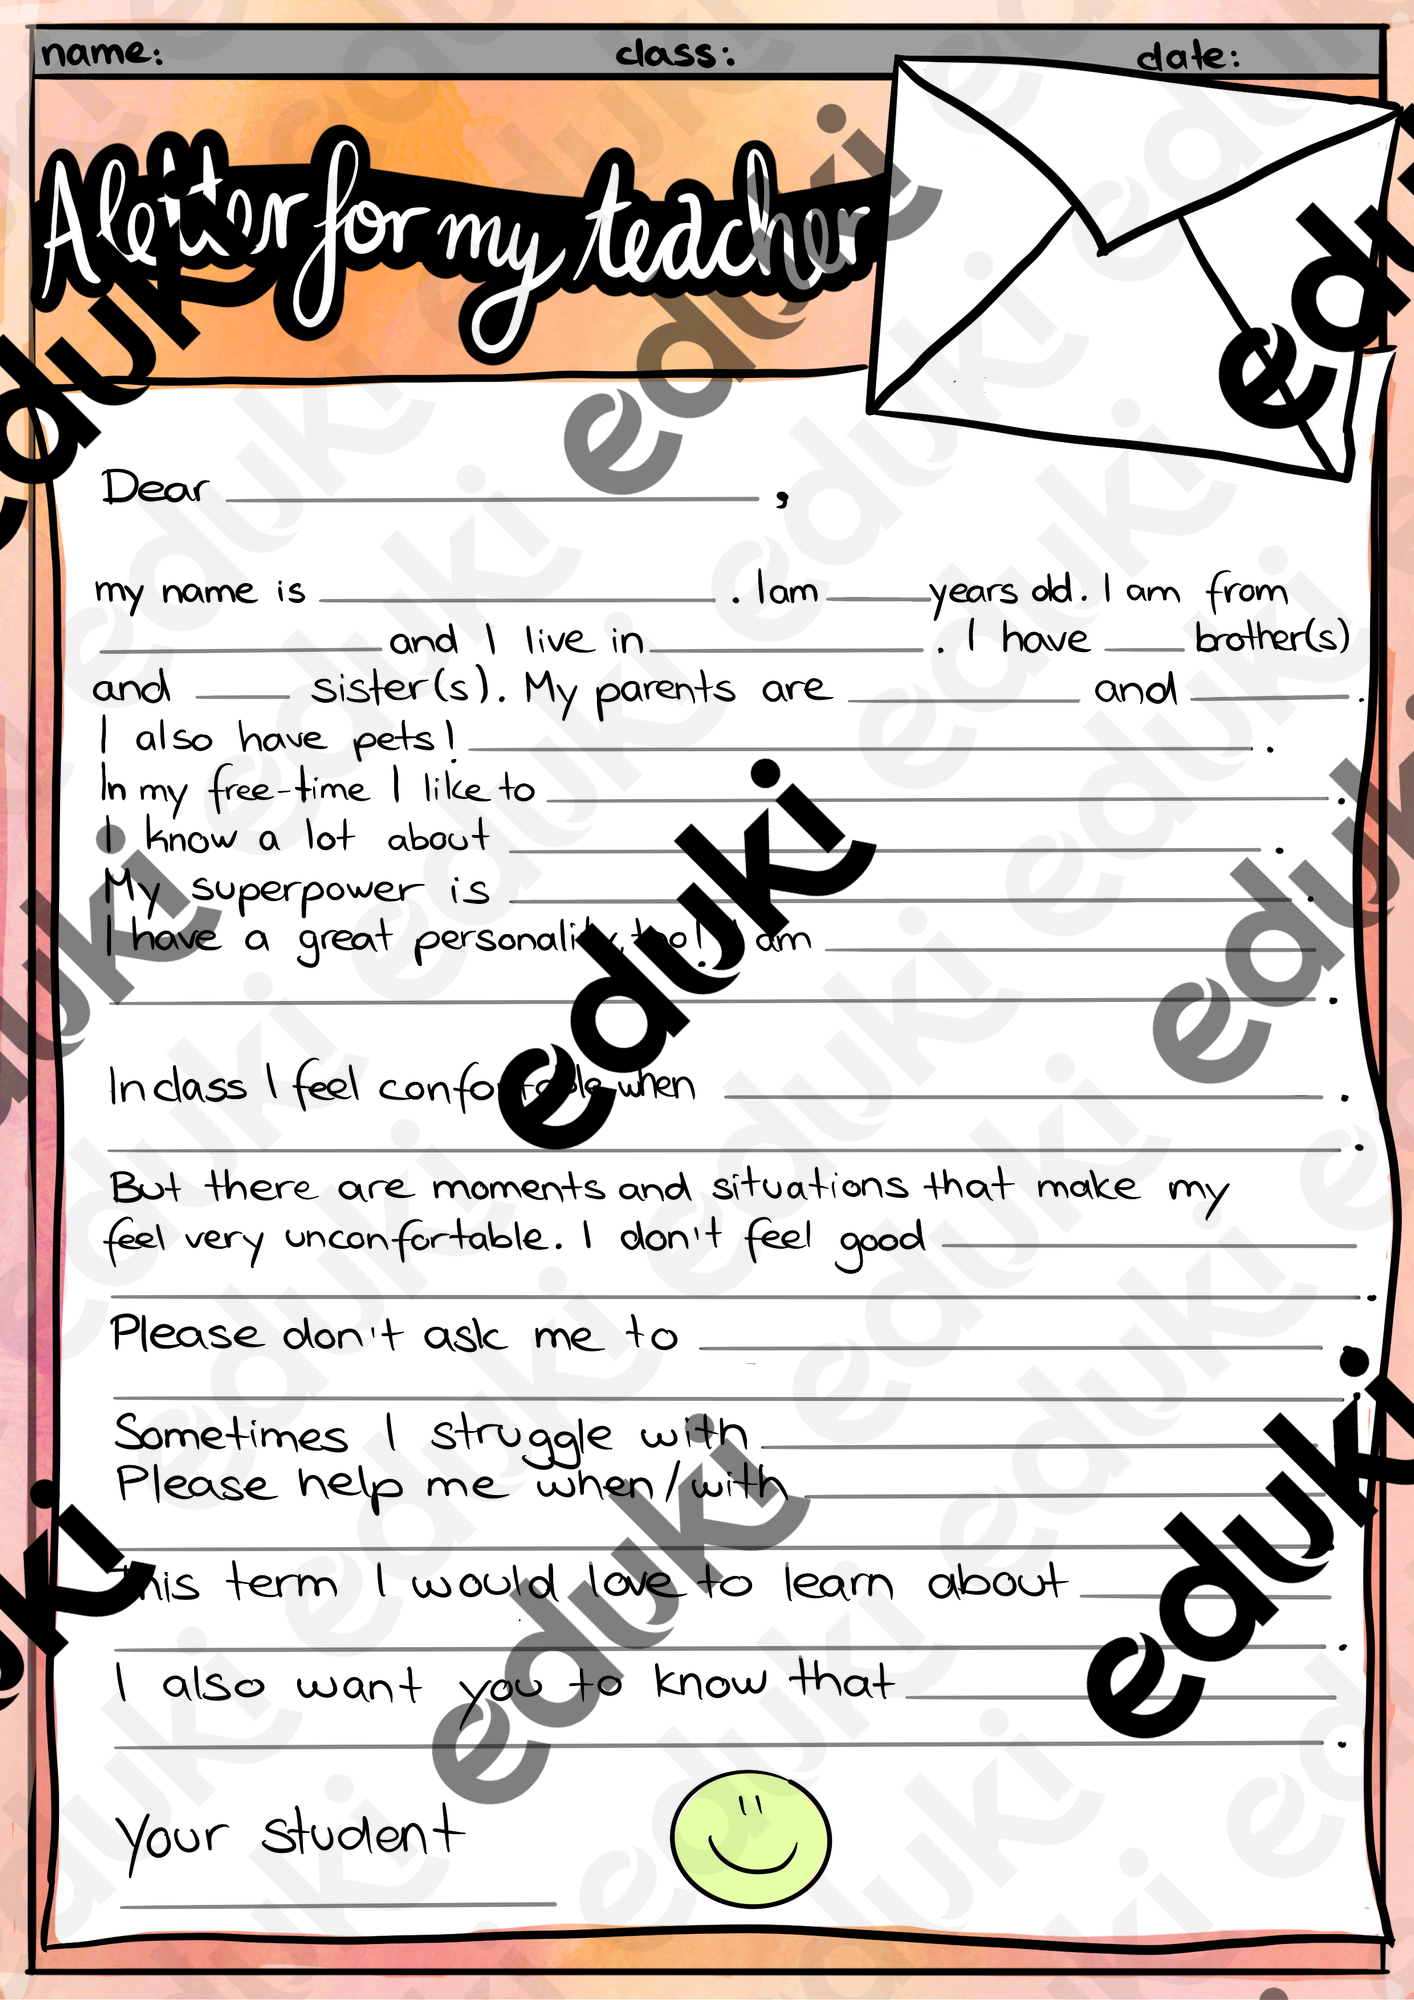 name: class: date:
A letter for my teacher
Dear ,
my name is . I am years old. I am from
and I live in . I have brother(s)
and sister(s). My parents are and .
I also have pets! .
In my free-time I like to .
I know a lot about .
My superpower is .
I have a great personality, too! I am
.
In class I feel confortable when .
.
But there are moments and situations that make my
feel very unconfortable. I don't feel good
.
Please don't ask me to
.
Sometimes I struggle with
Please help me when/with
.
This term I would love to learn about
.
I also want you to know that
.
Your student
eduki
eduki
eduki
eduki
eduki
eduki
eduki
eduki
eduki
eduki